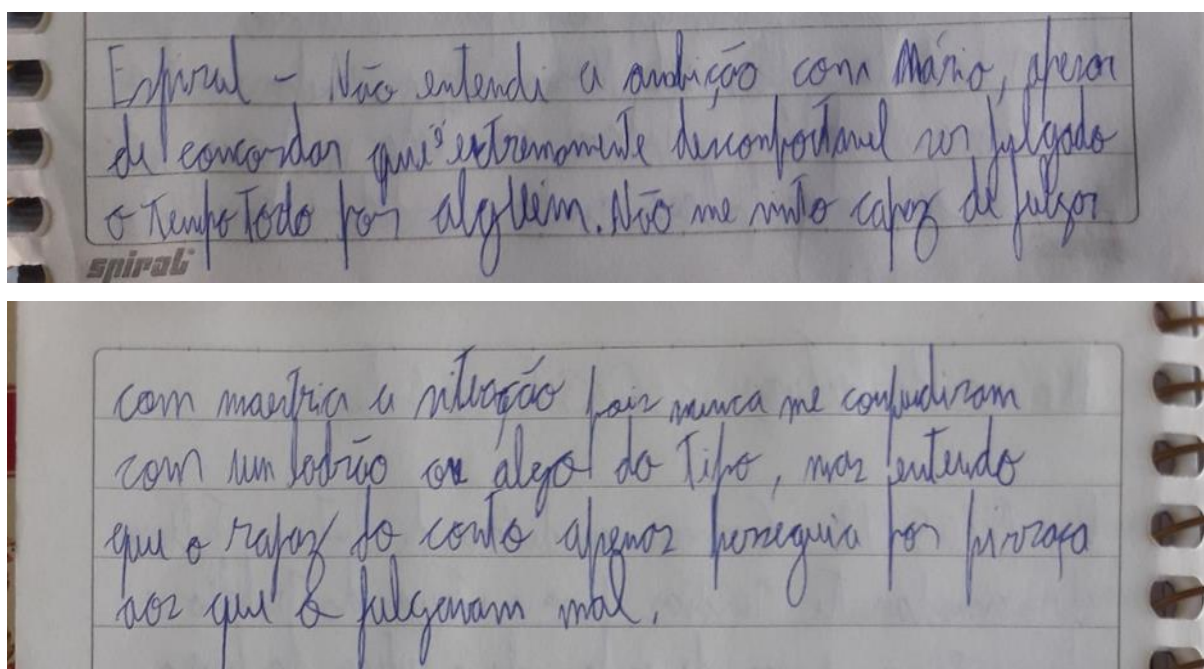 Espiral - Não entendi a ambição com Mário, apesar
de concordar que é extremamente desconfortável ser julgado
o tempo todo por alguém. Não me sinto capaz de julgar
spiral
com maestria a situação pois nunca me confudiram
com um ladrão ou algo do tipo, mas entendo
que o rapaz do conto apenas perseguia por pirraça
aos que o julgavam mal.